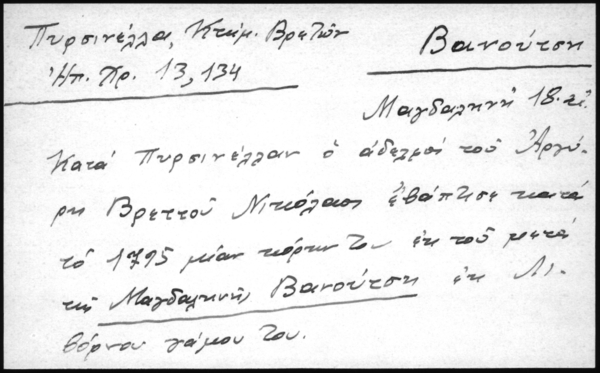 Πυρσινέλλα, Κτημ. Βρετῶν
Ἠπ. Χρ. 13, 134
Βανούτση
Μαγδαληνή 18. αἰ.
Κατά Πυρσινέλλαν ὁ ἀδελφός τοῦ Ἀργύ-
ρη Βρεττοῦ Νικόλαος ἐβάπτισε κατά
τό 1795 μίαν κόρην του ἐκ τοῦ μετά
τῆς Μαγδαληνῆς Βανούτση ἐκ Λι-
βόρνου γάμου του.